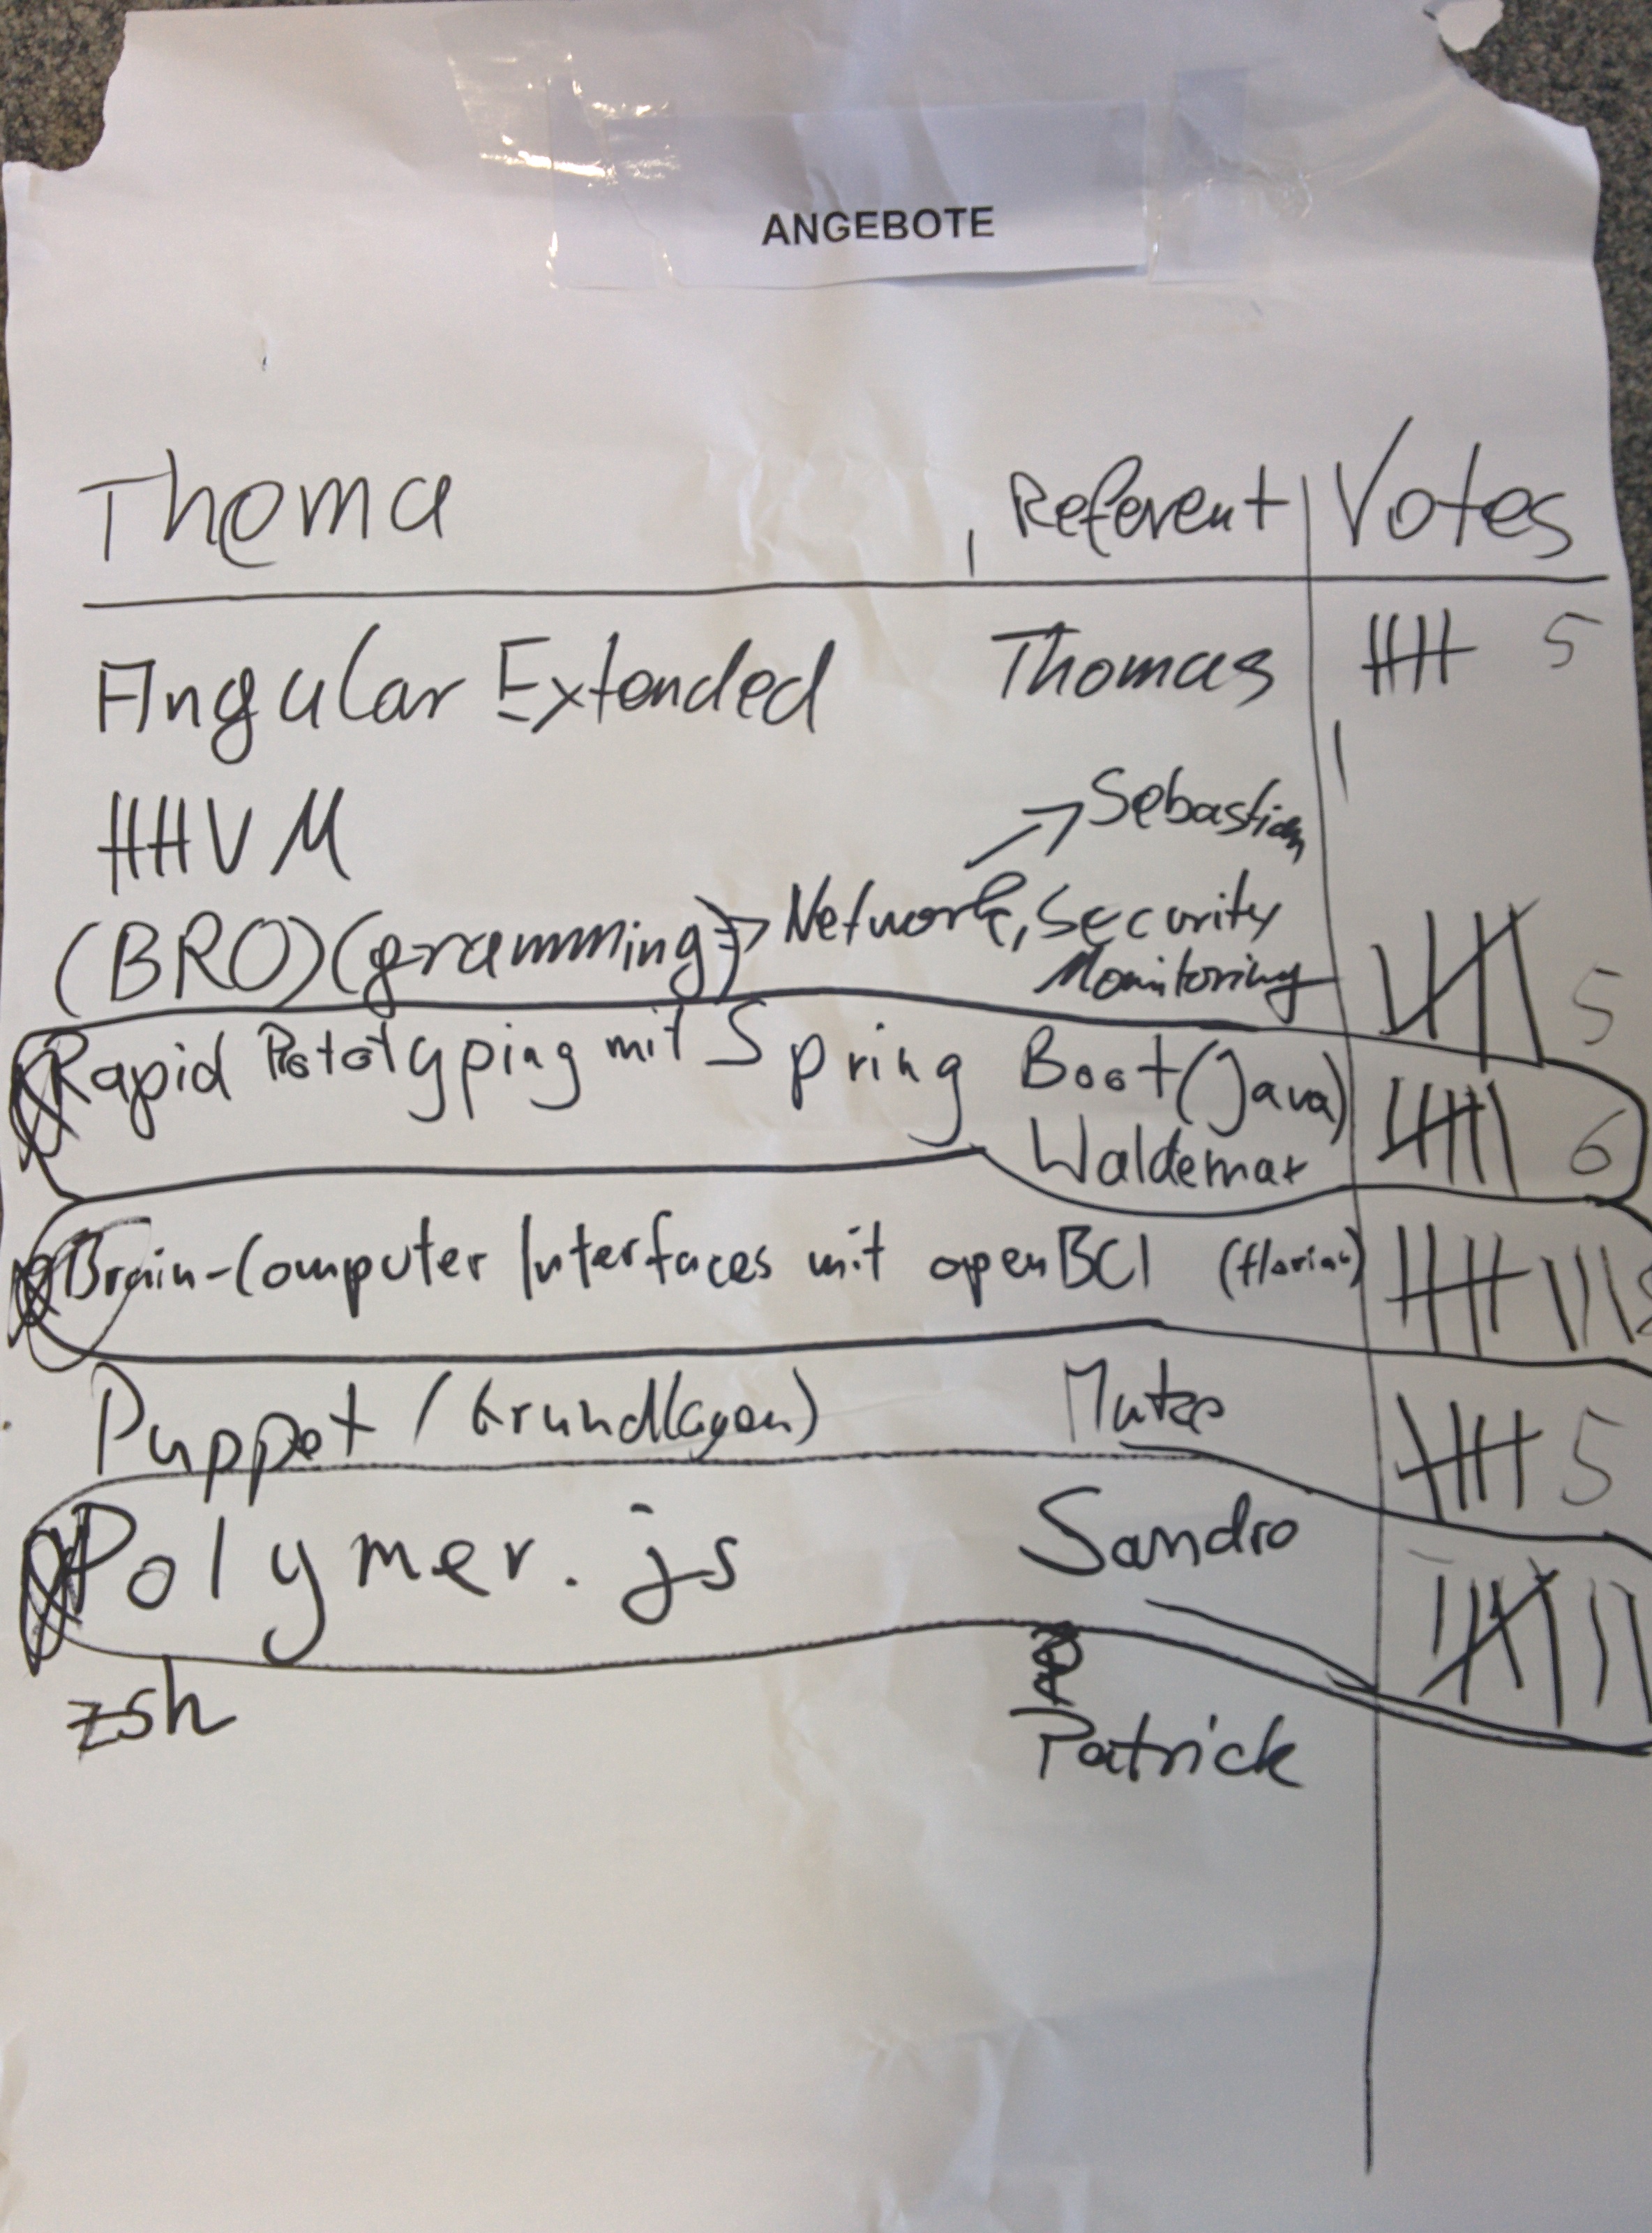 ANGEBOTE
Thema Referent Votes
Angular Extended Thomas 5
HHVM
Sebastian
(BRO)(gramming) → Network, Security
Monitoring 5
Rapid Prototyping mit Spring Boot (Java)
Waldemar 6
Brain-Computer Interfaces mit openBCI (florian)
Puppet (Grundlagen) 5
Polymer.js Sandro
zsh
Patrick